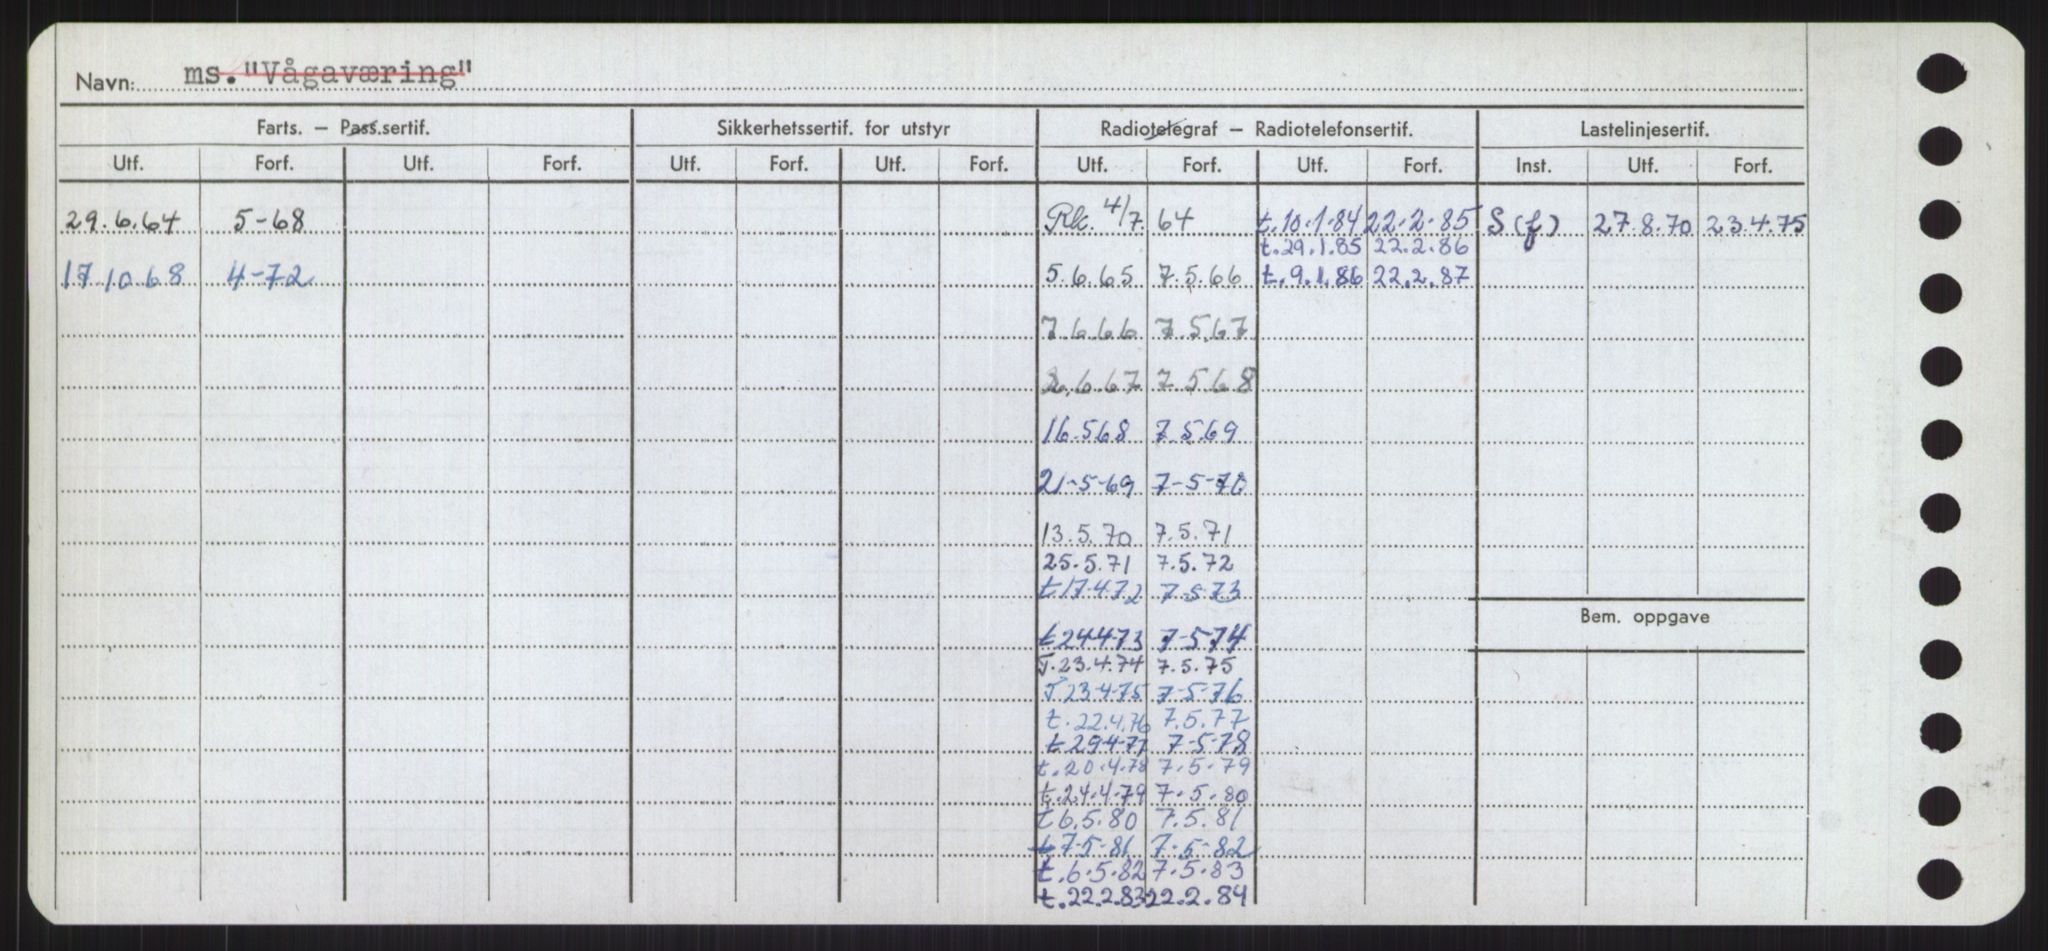 Navn: ms. "Vågaværing"
Farts. – Pass.sertif. Sikkerhetssertif. for utstyr Radiotelegraf – Radiotelefonsertif. Lastelinjesertif.
Utf. Forf. Utf. Forf. Utf. Forf. Utf. Forf. Utf. Forf. Utf. Forf. Inst. Utf. Forf.
29.6.64 5-68 Rk. 4/7. 64 t.10.1.84 22.2.85 S (f) 27.8.70 23.4.75
t.29.1.85 22.2.86
17 10 68 4-72 5.6.65 7.5.66 t.9.1.86 22.2.87
7.6.66 7.5.67
6.67 7.5.68
16.5.68 7.5.69
21-5-69 7-5-70
13.5.70 7.5.71
25.5.71 7.5.72
t17.4.72 7-5-73
Bem. oppgave
t24-4-73 7-5-74
T.23.4.74 7.5.75
T 23.4.75 7-5-76
t.22.4.76 7.5.77
t29-4-77 7-5-78
t.20.4.78 7.5.79
t.24.4.79 7.5.80
t6.5.80 7.5.81
t7-5-81 7-5-82
t.6.5.82 7.5.83
t.22.2.83 22.2.84